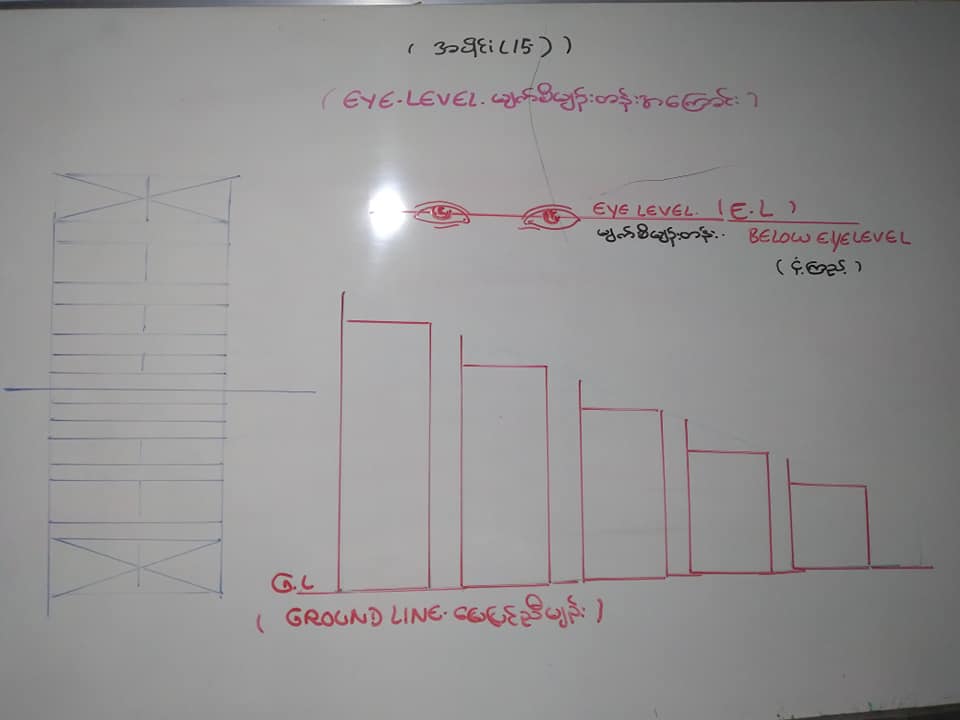 ( အပိုင်း (15) )
( EYE.LEVEL. မျက်စိမျဉ်းတန်းအကြောင်း )
EYE LEVEL. ( E.L )
မျက်စိမျဉ်းတန်း. BELOW EYELEVEL
(ငုံ့ကြည့်)
G.L
( GROUND LINE. မြေပြင်ညီမျဉ်း )